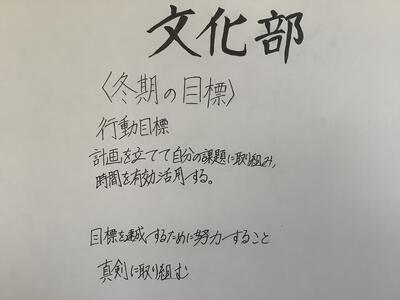 文化部
〈冬期の目標〉
行動目標
計画を立てて自分の課題に取り組み、
時間を有効活用する。
目標を達成するために努力すること
真剣に取り組む